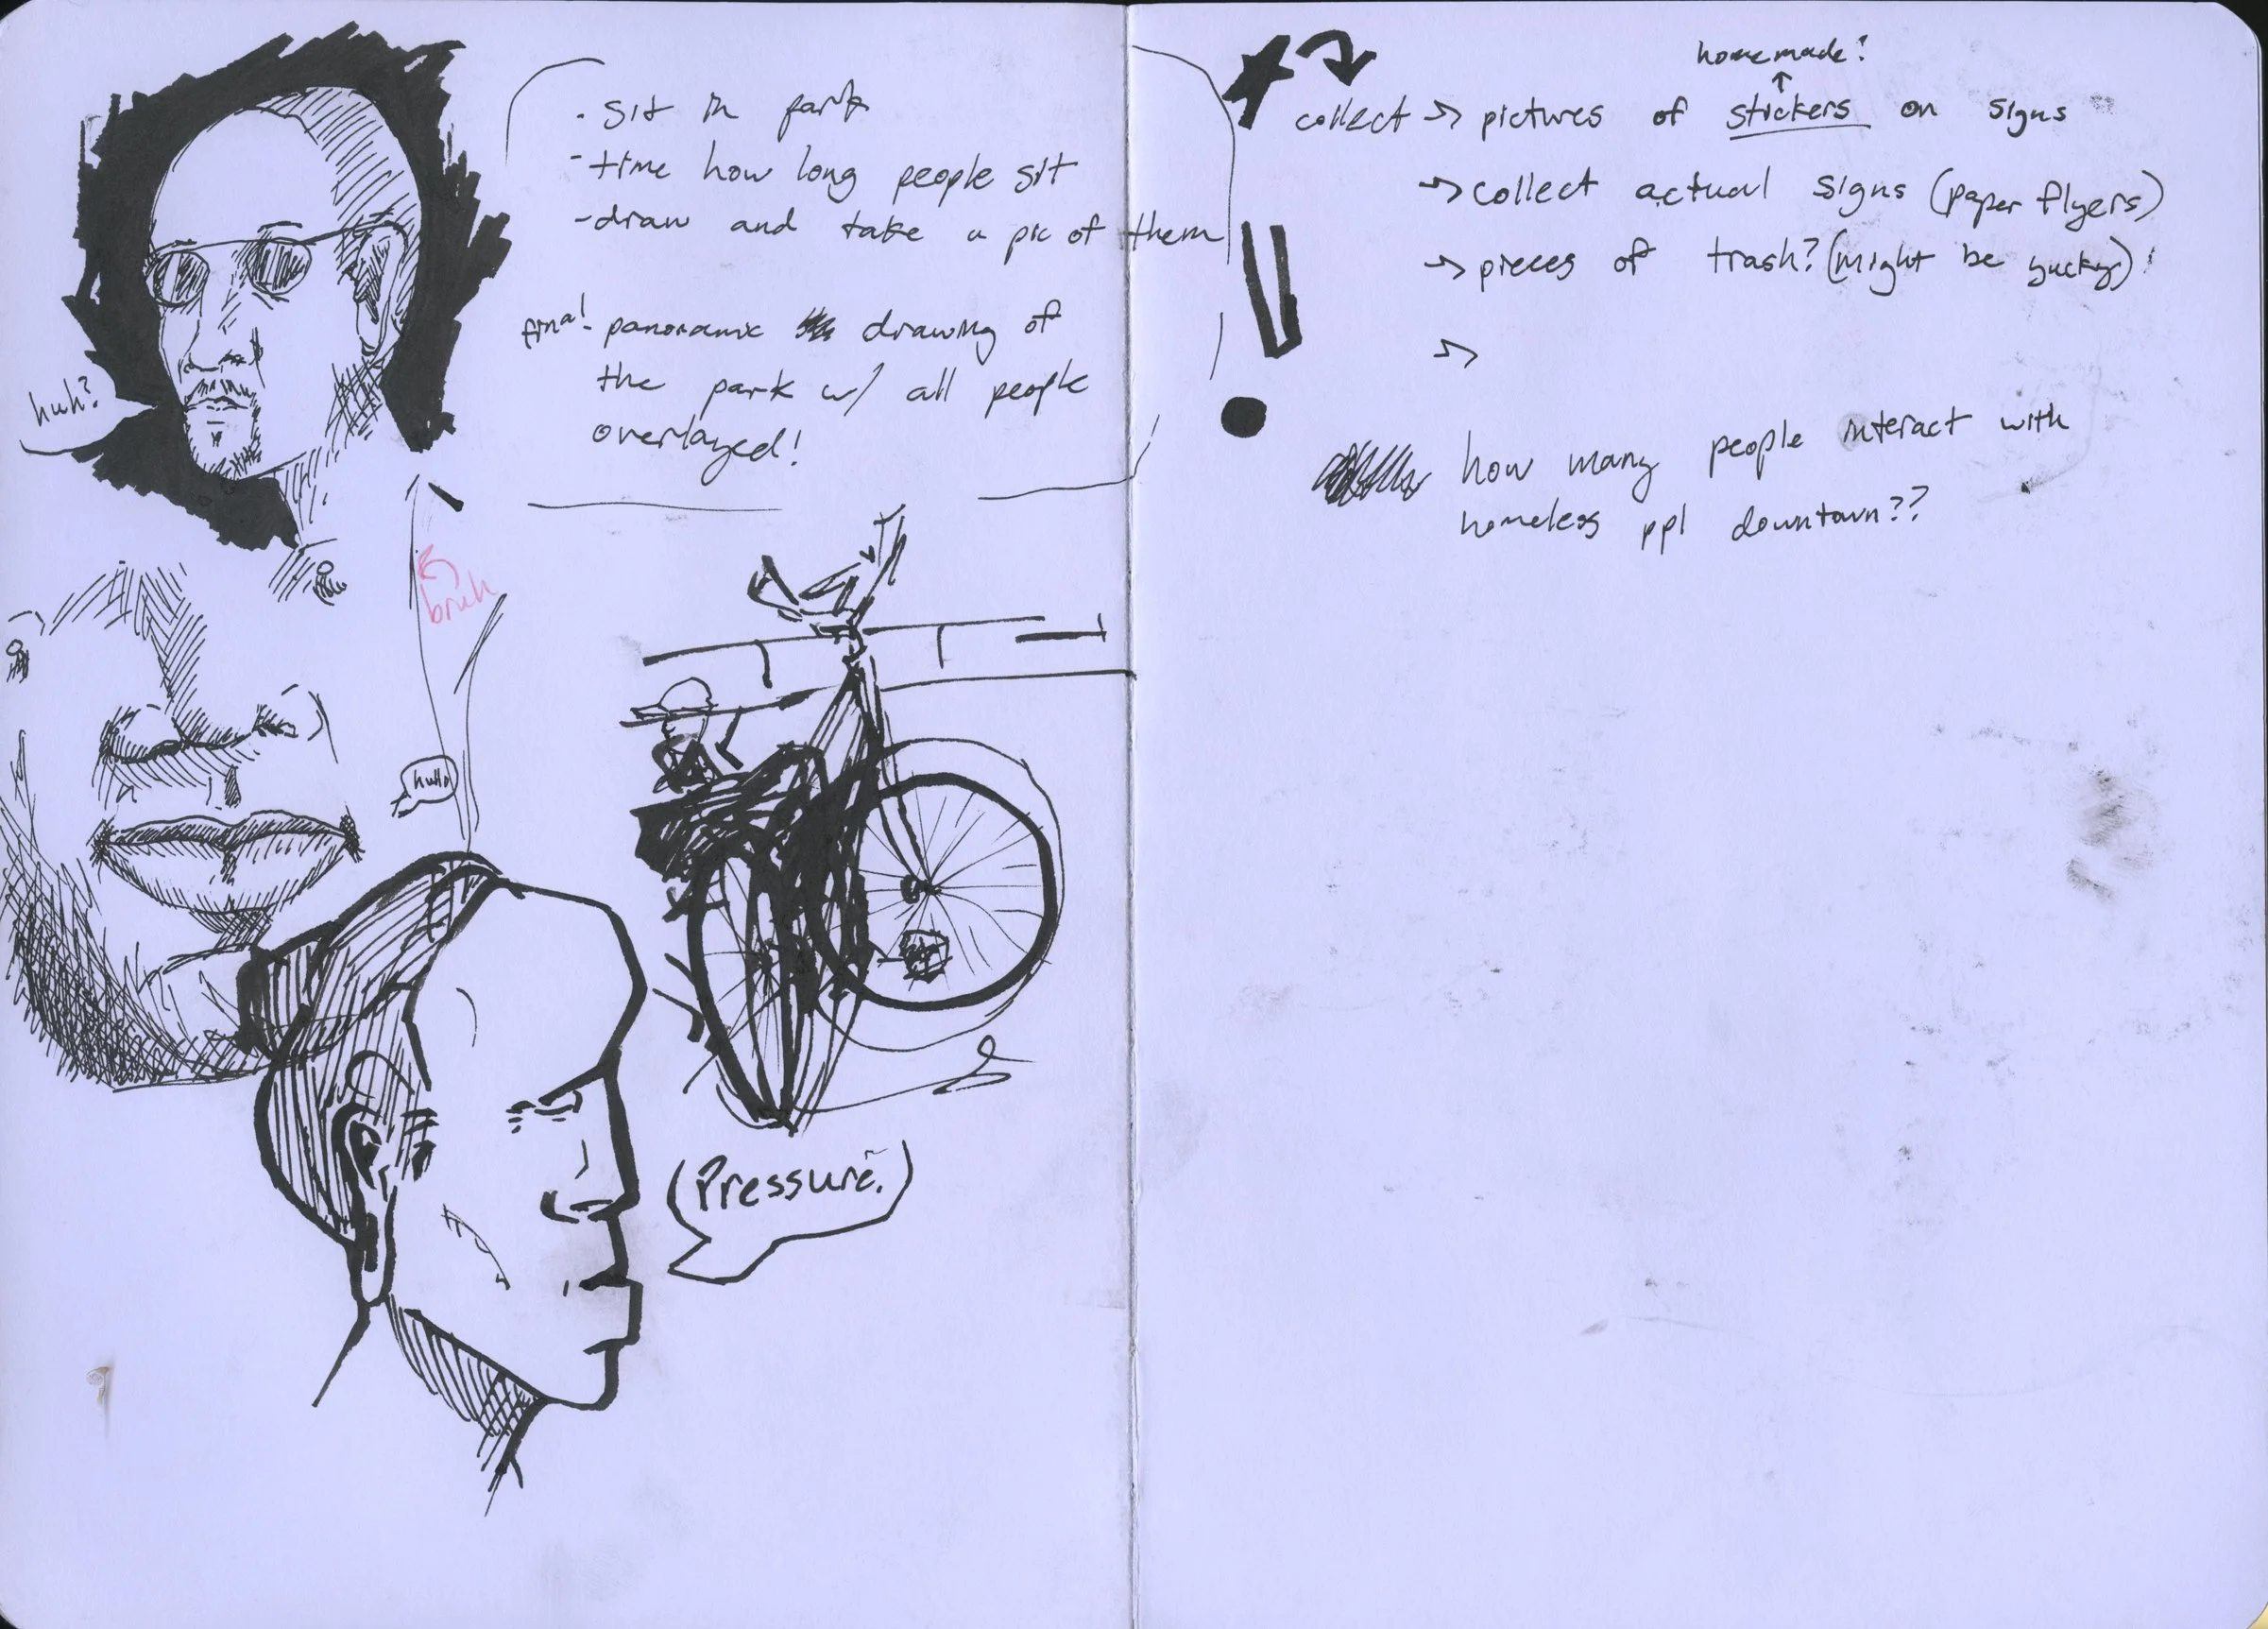 · sit in park
- time how long people sit
- draw and take a pic of them
final - panoramic drawing of
the park w/ all people
overlayed!
huh?
bruh
hullo
(Pressure.)
homemade?
collect → pictures of stickers on signs
→ collect actual signs (paper flyers)
→ pieces of trash? (might be yucky)!
→
how many people interact with
homeless ppl downtown??